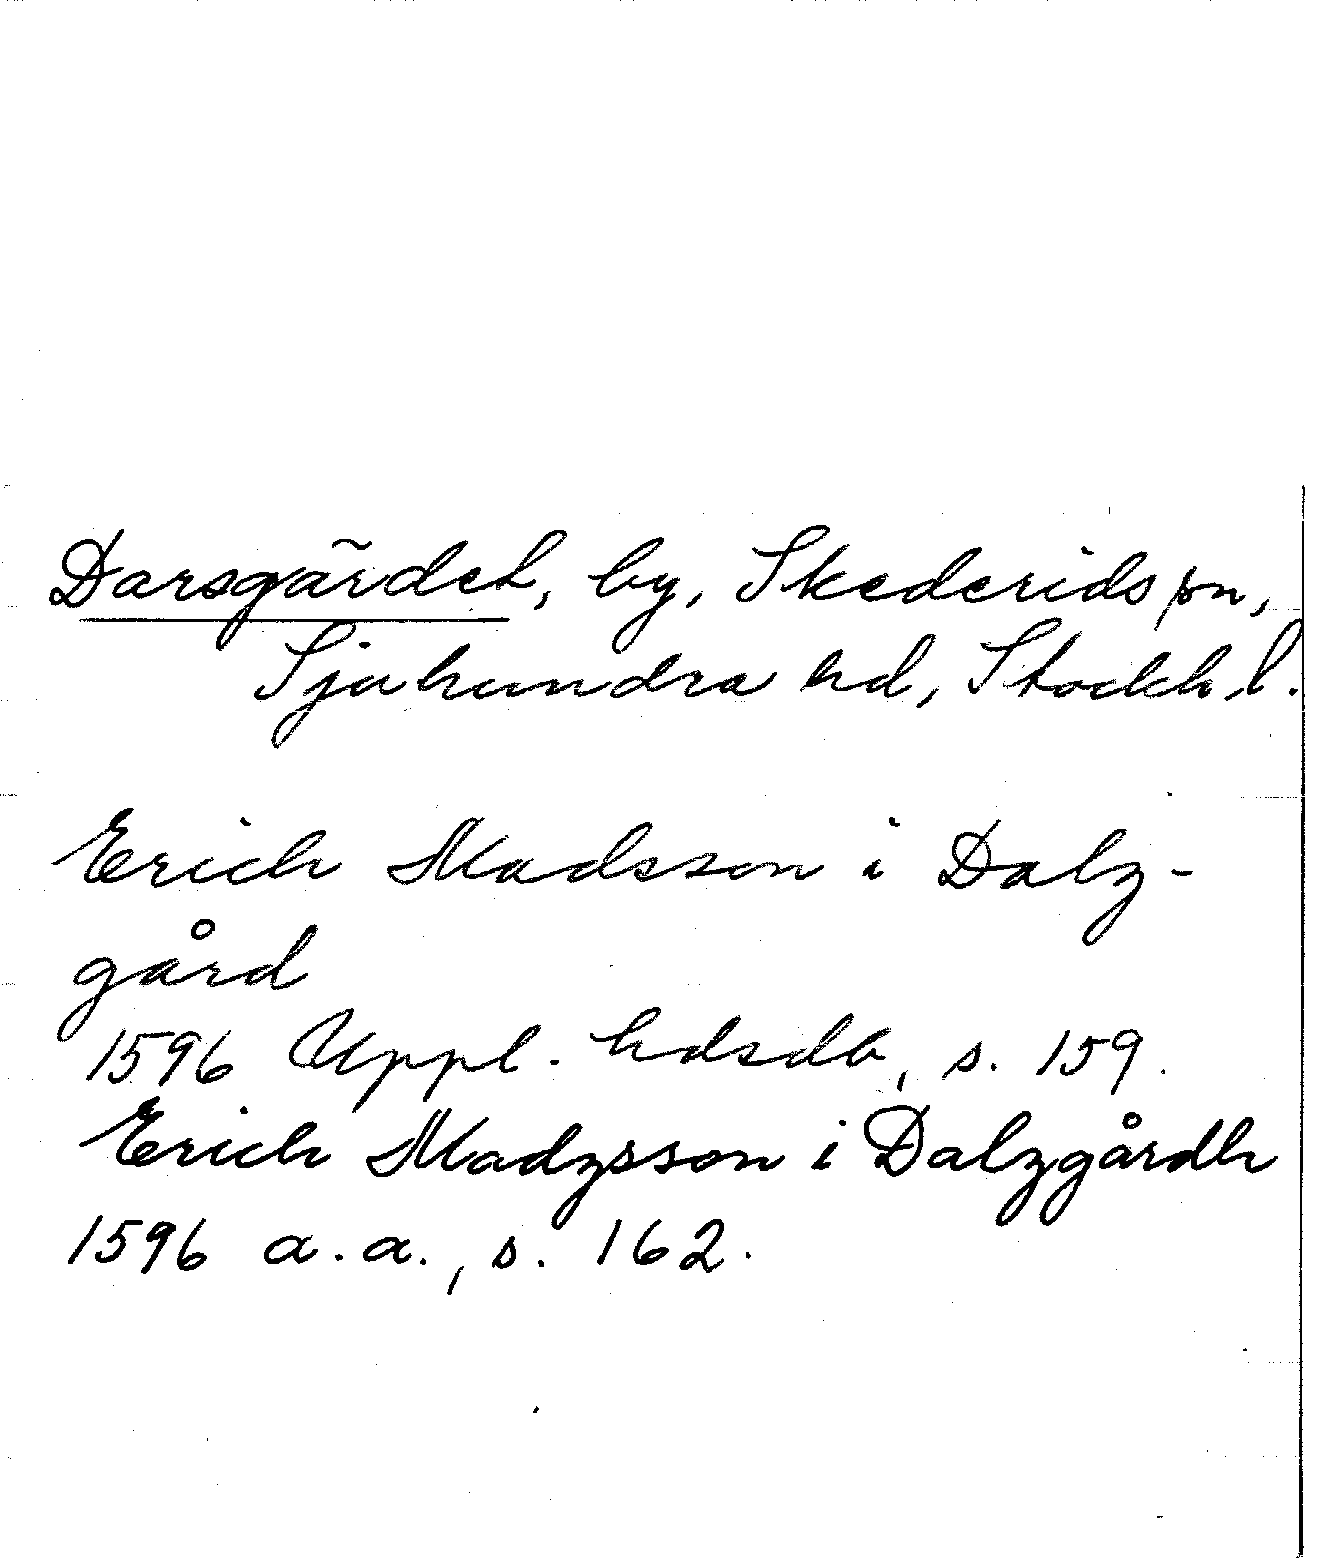 Darsgärdet, by, Skederids sn,
Sjuhundra hd, Stockh. l.
Erich Madsson i Dalz-
gård
1596 Uppl. hdsdb, s. 159.
Erich Madzsson i Dalzgårdh
1596 a.a., s. 162.